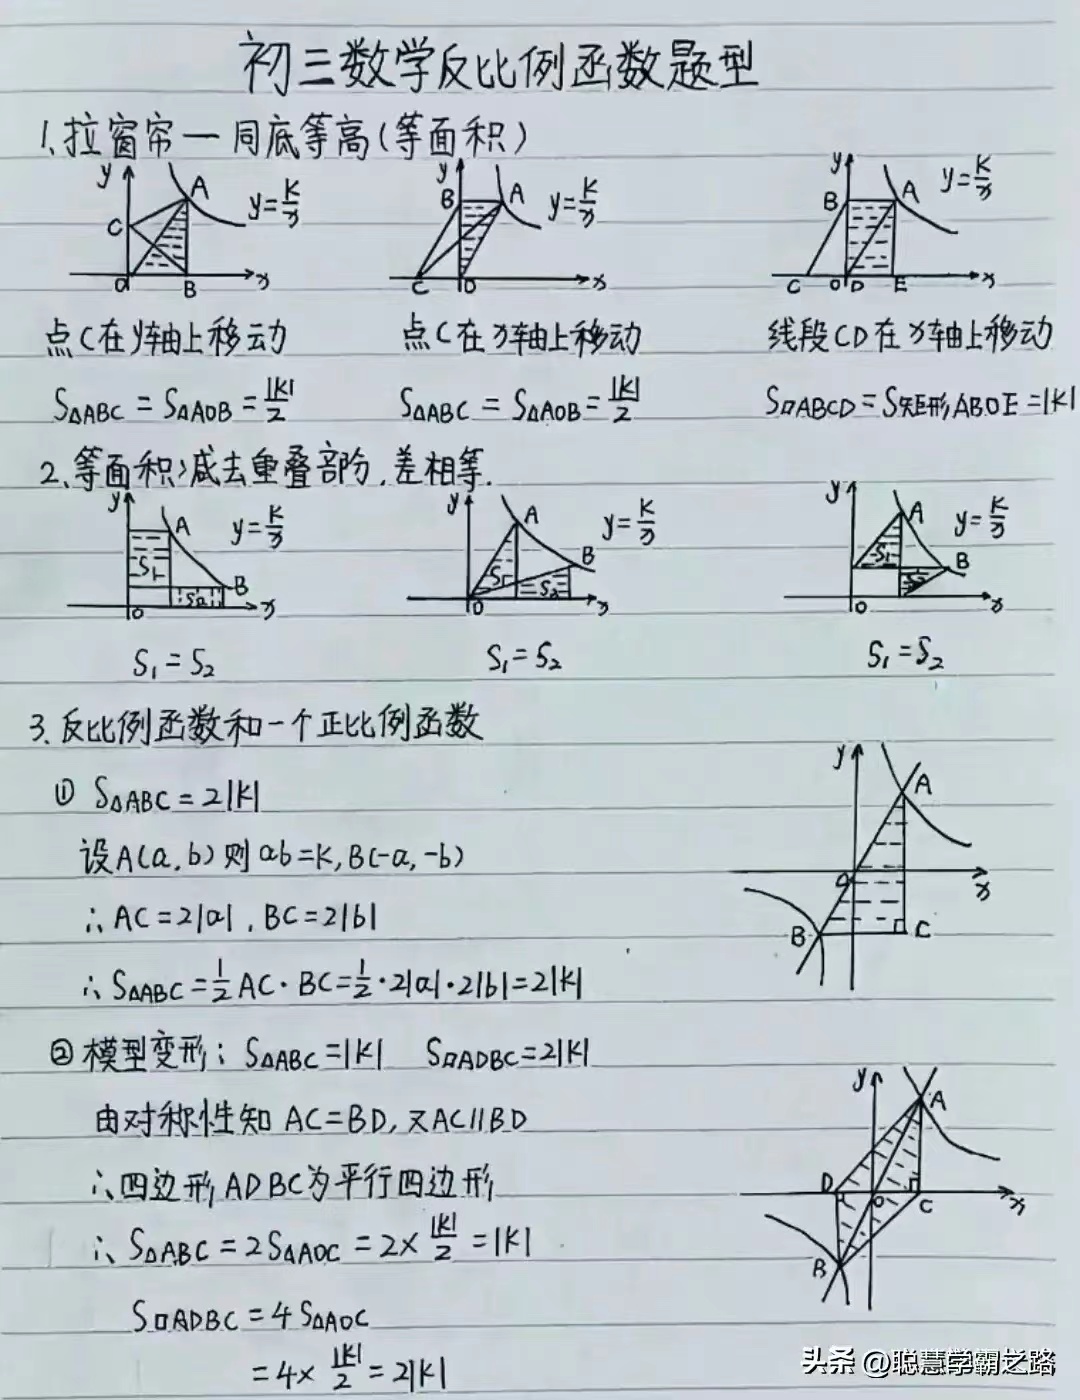 初三数学反比例函数题型
1、拉窗帘一同底等高(等面积)
y A C y=K/x O B x
y B A y=K/x C O x
y B A y=K/x C O D E x
点C在y轴上移动 点C在x轴上移动 线段CD在x轴上移动
S△ABC=S△AOB=|K|/2 S△ABC=S△AOB=|K|/2 S□ABCD=S矩形ABOE=|K|
2、等面积减去重叠部分,差相等.
y A y=K/x S1 B S2 O x
y A y=K/x B S1 S2 O x
y A y=K/x S1 B S2 O x
S1=S2 S1=S2 S1=S2
3.反比例函数和一个正比例函数
① S△ABC=2|K|
设A(a,b)则ab=K,B(-a,-b)
∴AC=2|a|,BC=2|b|
∴S△ABC=1/2AC·BC=1/2·2|a|·2|b|=2|K|
y A O x B C
②模型变形:S△ABC=|K| S□ADBC=2|K|
由对称性知AC=BD,又AC∥BD
∴四边形ADBC为平行四边形
∴S△ABC=2S△AOC=2×|K|/2=|K|
S□ADBC=4S△AOC
=4×|K|/2=2|K|
y A D O C x B
头条@聪慧学霸之路